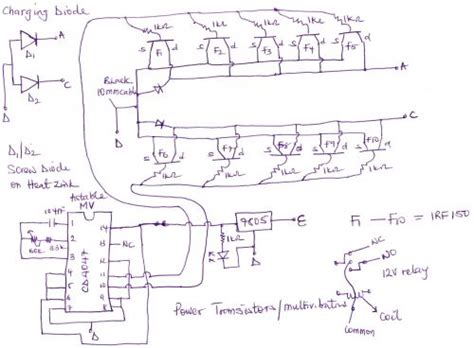 Charging Diode
A
D1
C
D2
D
D1/D2
Screw Diode
on Heat Zink
1kΩ
1kΩ
1kΩ
1kΩ
1kΩ
S F1 d
S F2 d
S F3 d
S F4 d
S F5 d
A
Black
10mm cable
C
S F6 d
S F7 d
S F8 d
S F9 d
S F10 d
1kΩ
1kΩ
1kΩ
1kΩ
1kΩ
Astable
MV
1
2
3
4
5
6
7
CD4047
14
13
12
11
10
9
8
NC
D
7805
E
1kΩ
D
F1 — F10 = IRF150
NC
NO
12V relay
Coil
Common
Power Transistors/multivibrator